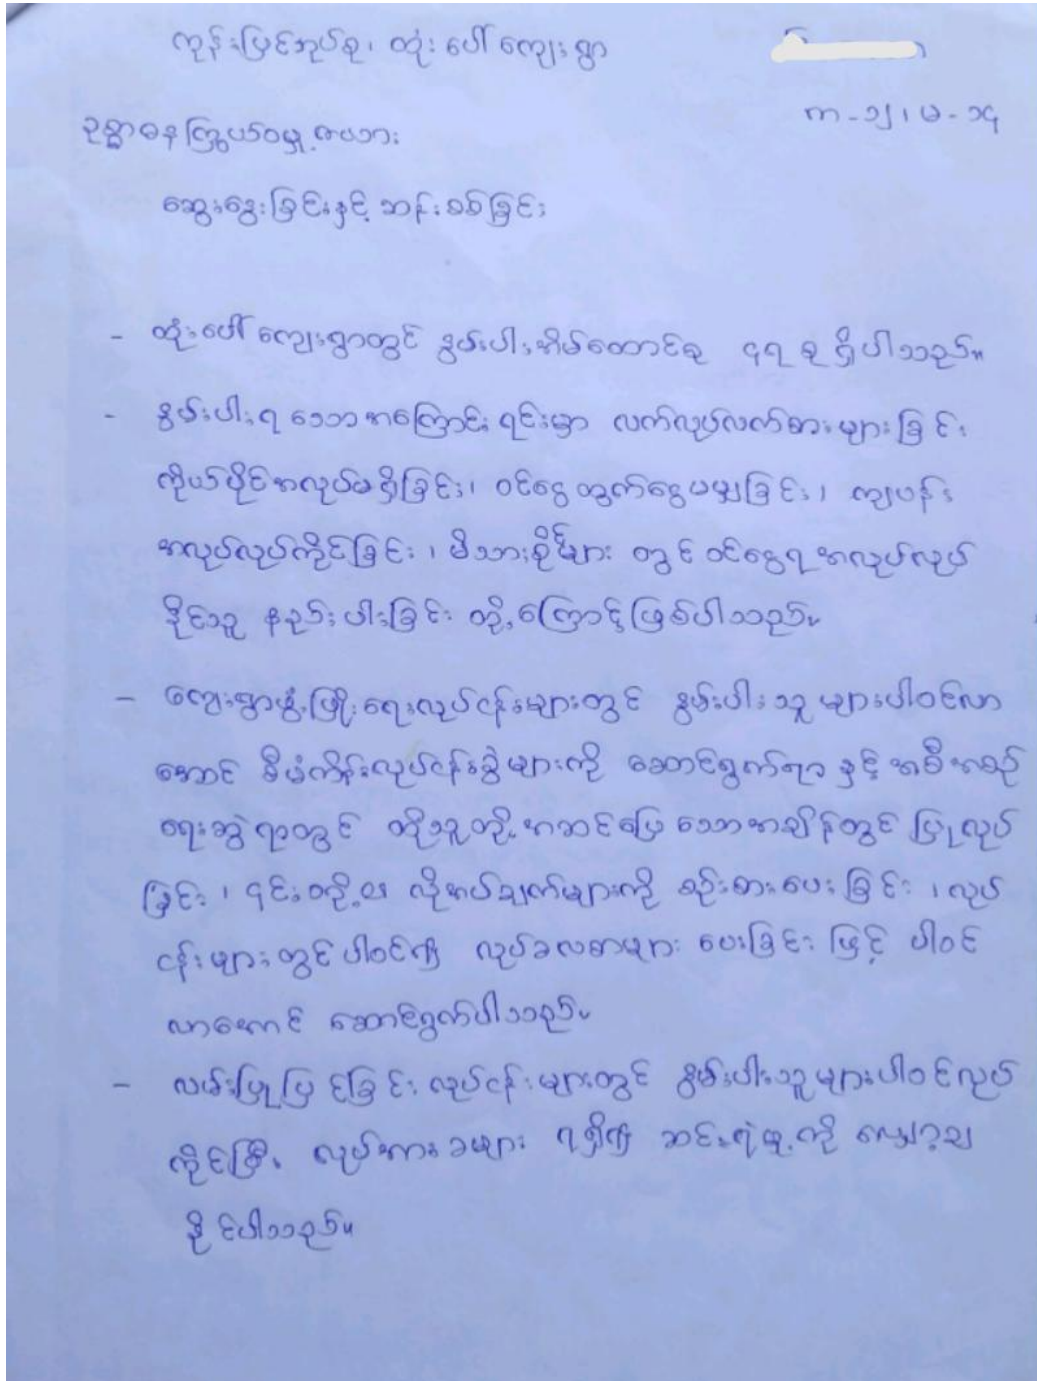 ကုန်းပြင်အုပ်စု၊ ထုံးပေါ်ကျေးရွာ
က - ၁၂၊ မ - ၁၄
ဥစ္စာဓနကြွယ်ဝမှုဇယား
ဆွေးနွေးခြင်းနှင့် ဆန်းစစ်ခြင်း
- ထုံးပေါ်ကျေးရွာတွင် နွမ်းပါးအိမ်ထောင်စု ၄၇ စု ရှိပါသည်။
- နွမ်းပါးရသောအကြောင်းရင်းမှာ လက်လုပ်လက်စားများခြင်း
ကိုယ်ပိုင်အလုပ်မရှိခြင်း၊ ဝင်ငွေထွက်ငွေမမျှခြင်း၊ ကျပန်း
အလုပ်လုပ်ကိုင်ခြင်း၊ မိသားစုဝင်များ တွင် ဝင်ငွေရအလုပ်လုပ်
နိုင်သူ နည်းပါးခြင်း တို့ကြောင့်ဖြစ်ပါသည်။
- ကျေးရွာဖွံ့ဖြိုးရေးလုပ်ငန်းများတွင် နွမ်းပါးသူများပါဝင်လာ
အောင် စီမံကိန်းလုပ်ငန်းခွဲများကို ဆောင်ရွက်ရာ နှင့်အစီအစဉ်
ရေးဆွဲရာတွင် ထိုသူတို့အဆင်ပြေသောအချိန်တွင် ပြုလုပ်
ခြင်း၊ ၎င်းတို့၏ လိုအပ်ချက်များကို စဉ်းစားပေးခြင်း၊ လုပ်
ငန်းများတွင်ပါဝင်၍ လုပ်ခလစာများ ပေးခြင်းဖြင့် ပါဝင်
လာအောင် ဆောင်ရွက်ပါသည်။
- လမ်းပြုပြင်ခြင်းလုပ်ငန်းများတွင် နွမ်းပါးသူများပါဝင်လုပ်
ကိုင်ပြီး လုပ်အားခများ ရရှိ၍ ဆင်းရဲမှုကို လျှော့ချ
နိုင်ပါသည်။